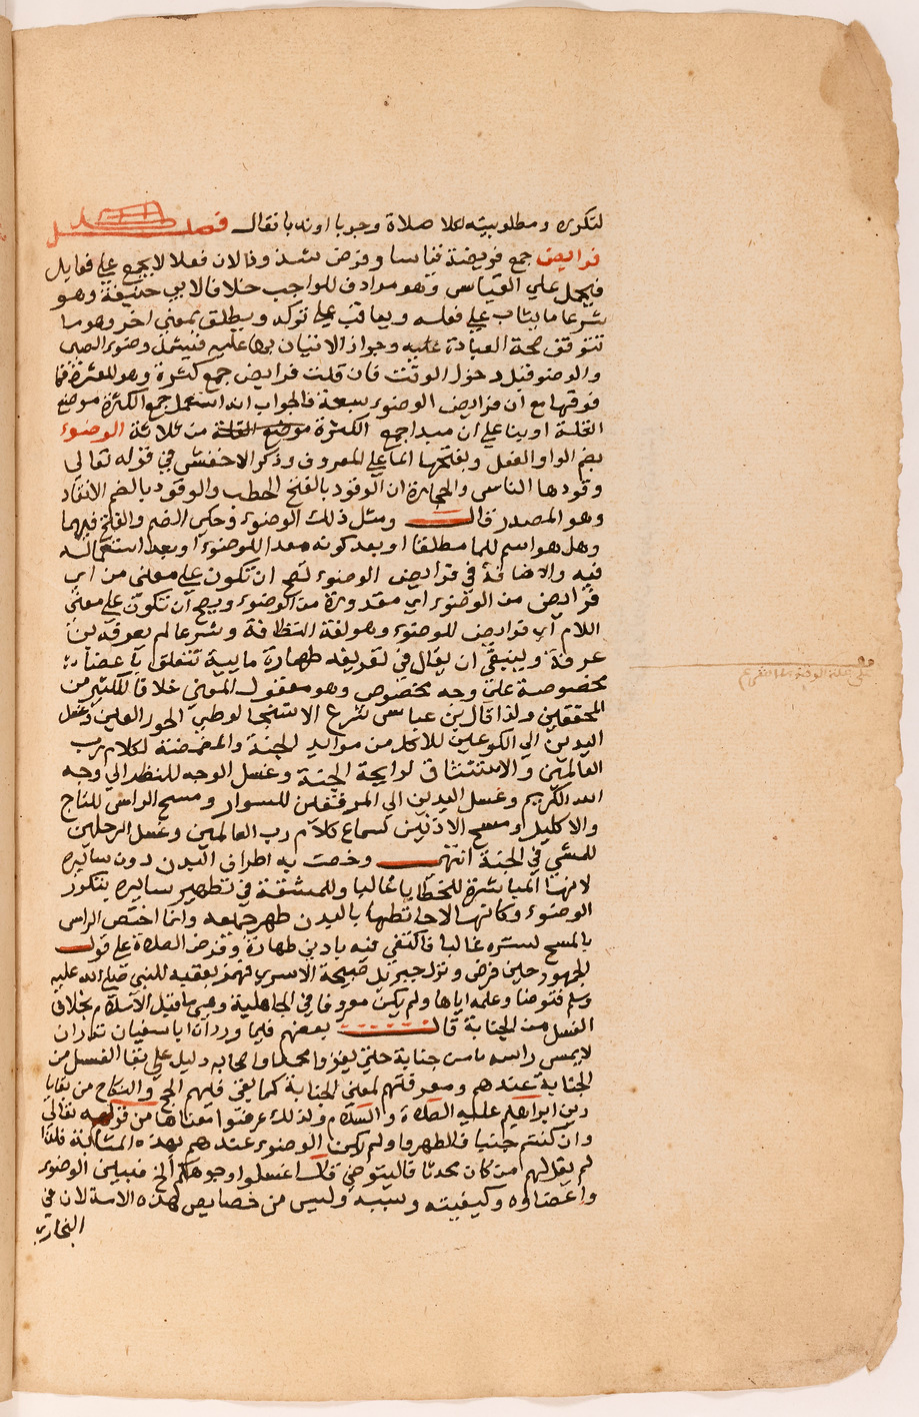 لتكرره ومطلوبيته لكل صلاة وجوبا او ندبا فقال فصل
فرايض جمع فريضة قياسا وفرض شذوذا لان فعلا لا يجمع علي فعايل
فيحمل علي القياس وهو مرادف للواجب خلافا لابي حنيفة وهو
شرعا ما يثاب علي فعله ويعاقب علي تركه ويطلق بمعني اخر وهو ما
تتوقف صحة العبادة عليه وجواز الاتيان بها عليه فيشمل وضوء الصبي
والوضو قبل دخول الوقت فان قلت فرايض جمع كثرة وهو للعشرة فما
فوقها مع ان فرايض الوضوء سبعة فالجواب انه استعمل جمع الكثرة موضع
القلة او بنا علي ان مبدا جمع الكثرة من ثلاثة الوضوء
بضم الواو الفعل وبفتحها الما علي المعروف وذكر الاخفش في قوله تعالي
وقودها الناس والحجارة ان الوقود بالفتح الحطب والوقود بالضم الاتقاد
وهو المصدر قال ومثل ذلك الوضوء وحكي الضم والفتح فيهما
وهل هو اسم للما مطلقا او بعد كونه معدا للوضوء او بعد استعماله
فيه والاضافة في فرايض الوضوء تصح ان تكون علي معني من اي
فرايض من الوضوء اي مقدورة من الوضوء ويصح ان تكون علي معني
اللام اي فرايض للوضوء وهو لغة النظافة وشرعا لم يعرفه بن
عرفة وينبغي ان يقال في تعريفه طهارة مايية تتعلق باعضاء
مخصوصة علي وجه مخصوص وهو معقول المعني خلافا للكثير من
المحققين ولذا قال بن عباس شرع الاستنجا لوطي الحور العين وغسل
اليدين الي الكوعين للاكل من موايد الجنة والمضمضة لكلام رب
العالمين والاستنشاق لرايحة الجنة وغسل الوجه للنظر الي وجه
الله الكريم وغسل اليدين الي المرفقين للسوار ومسح الراس للتاج
والاكليل ومسح الاذنين لسماع كلام رب العالمين وغسل الرجلين
للمشي في الجنة انتهي وخصت به اطراف البدن دون سايره
لانها المباشرة للخطايا غالبا وللمشقة في تطهير سايره بتكرر
الوضوء وكانها لاحاطتها بالبدن طهر جميعه وانما اختص الراس
بالمسح لستره غالبا فاكتفي فيه بادني طهارة وفرض الصلاة علي قول
الجمهور حين فرض ونزل جبريل صبيحة الاسرا فهمز بعقبه للنبي صلي الله عليه
وسلم فتوضا وعلمه اياها ولم يكن معروفا في الجاهلية وهي ما قبل الاسلام بخلاف
الغسل من الجنابة قال بعضهم فيما ورد ان ابا سفيان نذر ان
لا يمس راسه ما من جنابة حتي يغزو محمدا واصحابه دليل علي بقا الغسل من
الجنابة عندهم ومعرفتهم لمعني الجنابة كما بقي فيهم الحج والنكاح من بقايا
دين ابراهيم عليه الصلاة والسلام ولذلك عرفوا معناها من قوله تعالي
وان كنتم جنبا فاطهروا ولم يكن الوضوء عندهم بهذه المثابة فلذا
لم يقل لهم من كان محدثا فاليتوضي قال اغسلوا وجوهكم الخ فبين الوضوء
واعضاوه وكيفيته وسببه وليس من خصايص هذه الامة لان في
البخاري